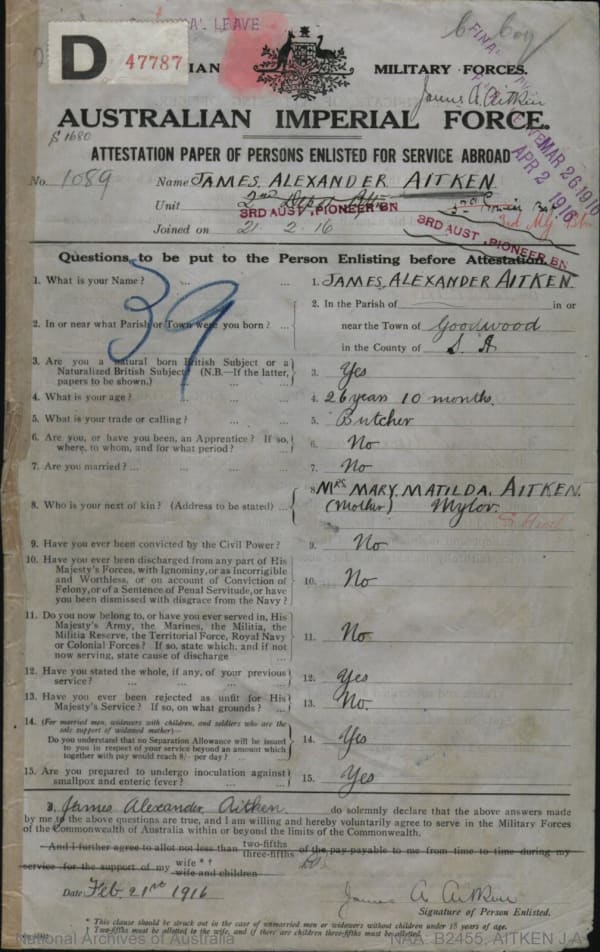 D 47787
LEAVE
MILITARY FORCES.
James A. Aitken
AUSTRALIAN IMPERIAL FORCE.
MAR 26 1916
APR 2 1916
ATTESTATION PAPER OF PERSONS ENLISTED FOR SERVICE ABROAD
No. 1089 Name JAMES, ALEXANDER AITKEN
Unit 2nd Depot
3RD AUST. PIONEER BN
3RD AUST. PIONEER BN
Joined on 21. 2. 16
Questions to be put to the Person Enlisting before Attestation.
39
1. What is your Name? ... 1. JAMES, ALEXANDER AITKEN
2. In or near what Parish or Town were you born? ... 2. In the Parish of in or
near the Town of Goodwood
in the County of S. A
3. Are you a natural born British Subject or a
Naturalized British Subject? (N.B.—If the latter,
papers to be shown.) ... 3. Yes
4. What is your age? ... 4. 26 years 10 months.
5. What is your trade or calling? ... 5. Butcher
6. Are you, or have you been, an Apprentice? If so,
where, to whom, and for what period? ... 6. No
7. Are you married? ... 7. No
8. Who is your next of kin? (Address to be stated) ... 8. MRS. MARY, MATILDA, AITKEN.
(Mother) Mylor.
9. Have you ever been convicted by the Civil Power? 9. No
10. Have you ever been discharged from any part of His
Majesty's Forces, with Ignominy, or as incorrigible
and Worthless, or on account of Conviction of
Felony, or of a Sentence of Penal Servitude, or have
you been dismissed with disgrace from the Navy? 10. No
11. Do you now belong to, or have you ever served in, His
Majesty's Army, the Marines, the Militia, the
Militia Reserve, the Territorial Force, Royal Navy
or Colonial Forces? If so, state which, and if not
now serving, state cause of discharge ... 11. No
12. Have you stated the whole, if any, of your previous
service? ... 12. Yes
13. Have you ever been rejected as unfit for His
Majesty's Service? If so, on what grounds? 13. No.
14. (For married men, widowers with children, and soldiers who are the
sole support of widowed mother)—
Do you understand that no Separation Allowance will be issued
to you in respect of your service beyond an amount which
together with pay would reach 8/- per day? ... 14. Yes
15. Are you prepared to undergo inoculation against
smallpox and enteric fever? 15. Yes
I, James Alexander Aitken do solemnly declare that the above answers made
by me to the above questions are true, and I am willing and hereby voluntarily agree to serve in the Military Forces
of the Commonwealth of Australia within or beyond the limits of the Commonwealth.
And I further agree to allot not less than two-fifths three-fifths of the pay payable to me from time to time during my
service for the support of my wife * † wife and children
Date Feb. 21st 1916 James A Aitken
Signature of Person Enlisted.
* This clause should be struck out in the case of unmarried men or widowers without children under 18 years of age.
† Two-fifths must be allotted to the wife, and if there are children three-fifths must be allotted.
National Archives of Australia NAA: B2455, AITKEN J A